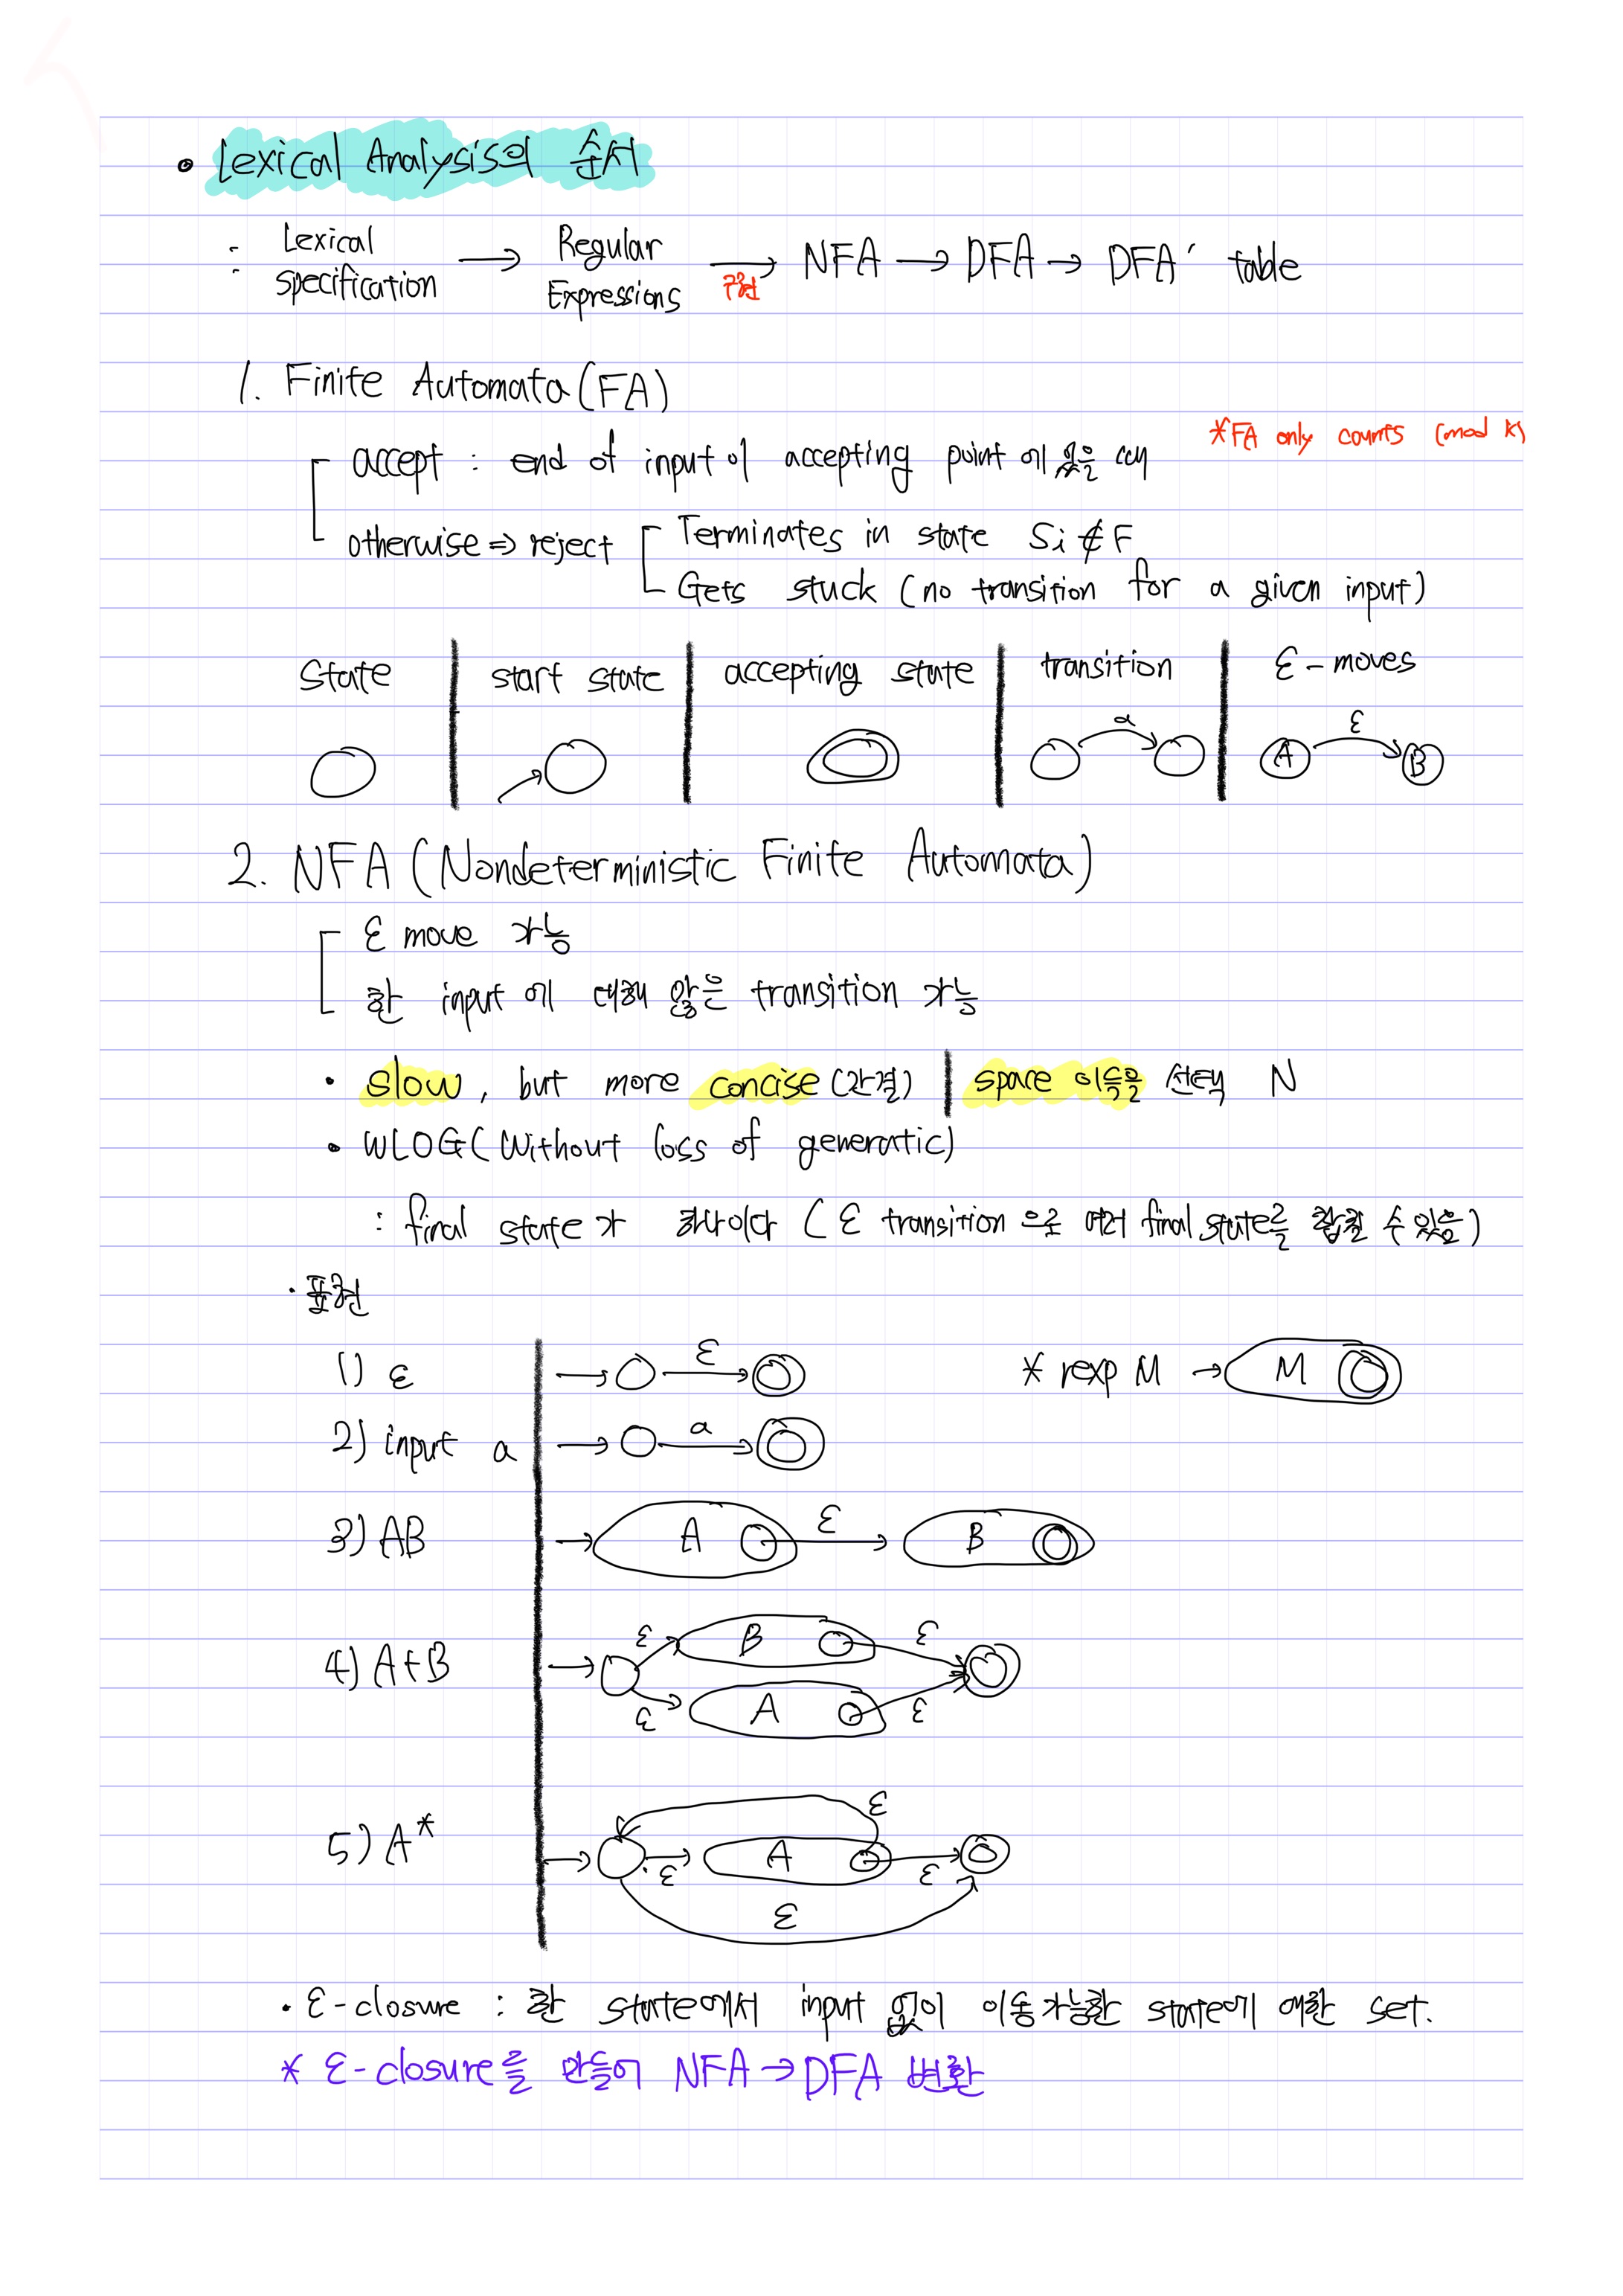 • Lexical Analysis의 순서
: Lexical Specification → Regular Expressions → 구현 NFA → DFA → DFA' table
1. Finite Automata (FA)
*FA only counts (mod k)
accept : end of input이 accepting point에 있을 때
otherwise ⇒ reject
Terminates in state Si ∉ F
Gets stuck (no transition for a given input)
State | start state | accepting state | transition | ε-moves
a
ε
A B
2. NFA (Nondeterministic Finite Automata)
ε move 가능
한 input에 대해 많은 transition 가능
• slow, but more concise (간결) | space 이득을 선택 N
• WLOG (Without loss of generatic)
: final state가 하나이다 (ε transition으로 여러 final state를 합칠 수 있음)
• 표현
1) ε
ε
* rexp M → M
2) input a
a
3) AB
A ε B
4) A+B
ε B ε
ε A ε
5) A*
ε
ε A ε
ε
• ε-closure : 한 state에서 input 없이 이동가능한 state에 대한 set.
* ε-closure를 만들어 NFA → DFA 변환